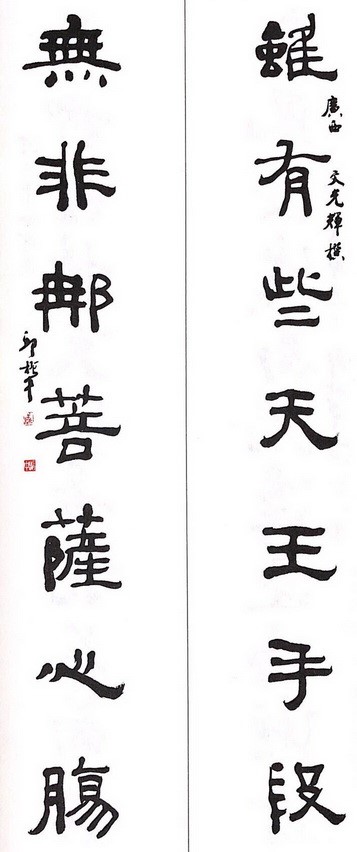 雖有些天王手段
廣西 文光輝撰
無非那菩薩心腸